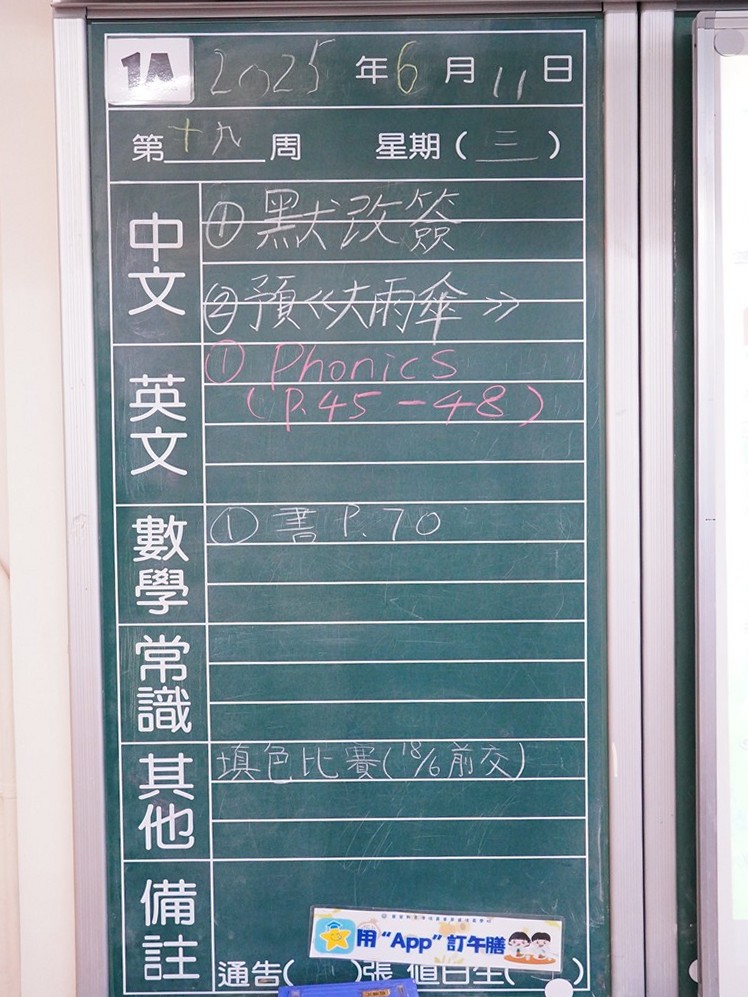 1A 2025年6月11日
第十九周 星期(三)
中文
①默改簽
②預《大雨傘》
英文
① Phonics
(P.45-48)
數學
①書P.70
常識
其他
填色比賽(18/6前交)
備註
用“App”訂午膳
通告( )張 值日生( )